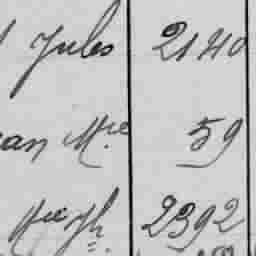 Jules 2140
an Mie 59
Mie Jh 2392